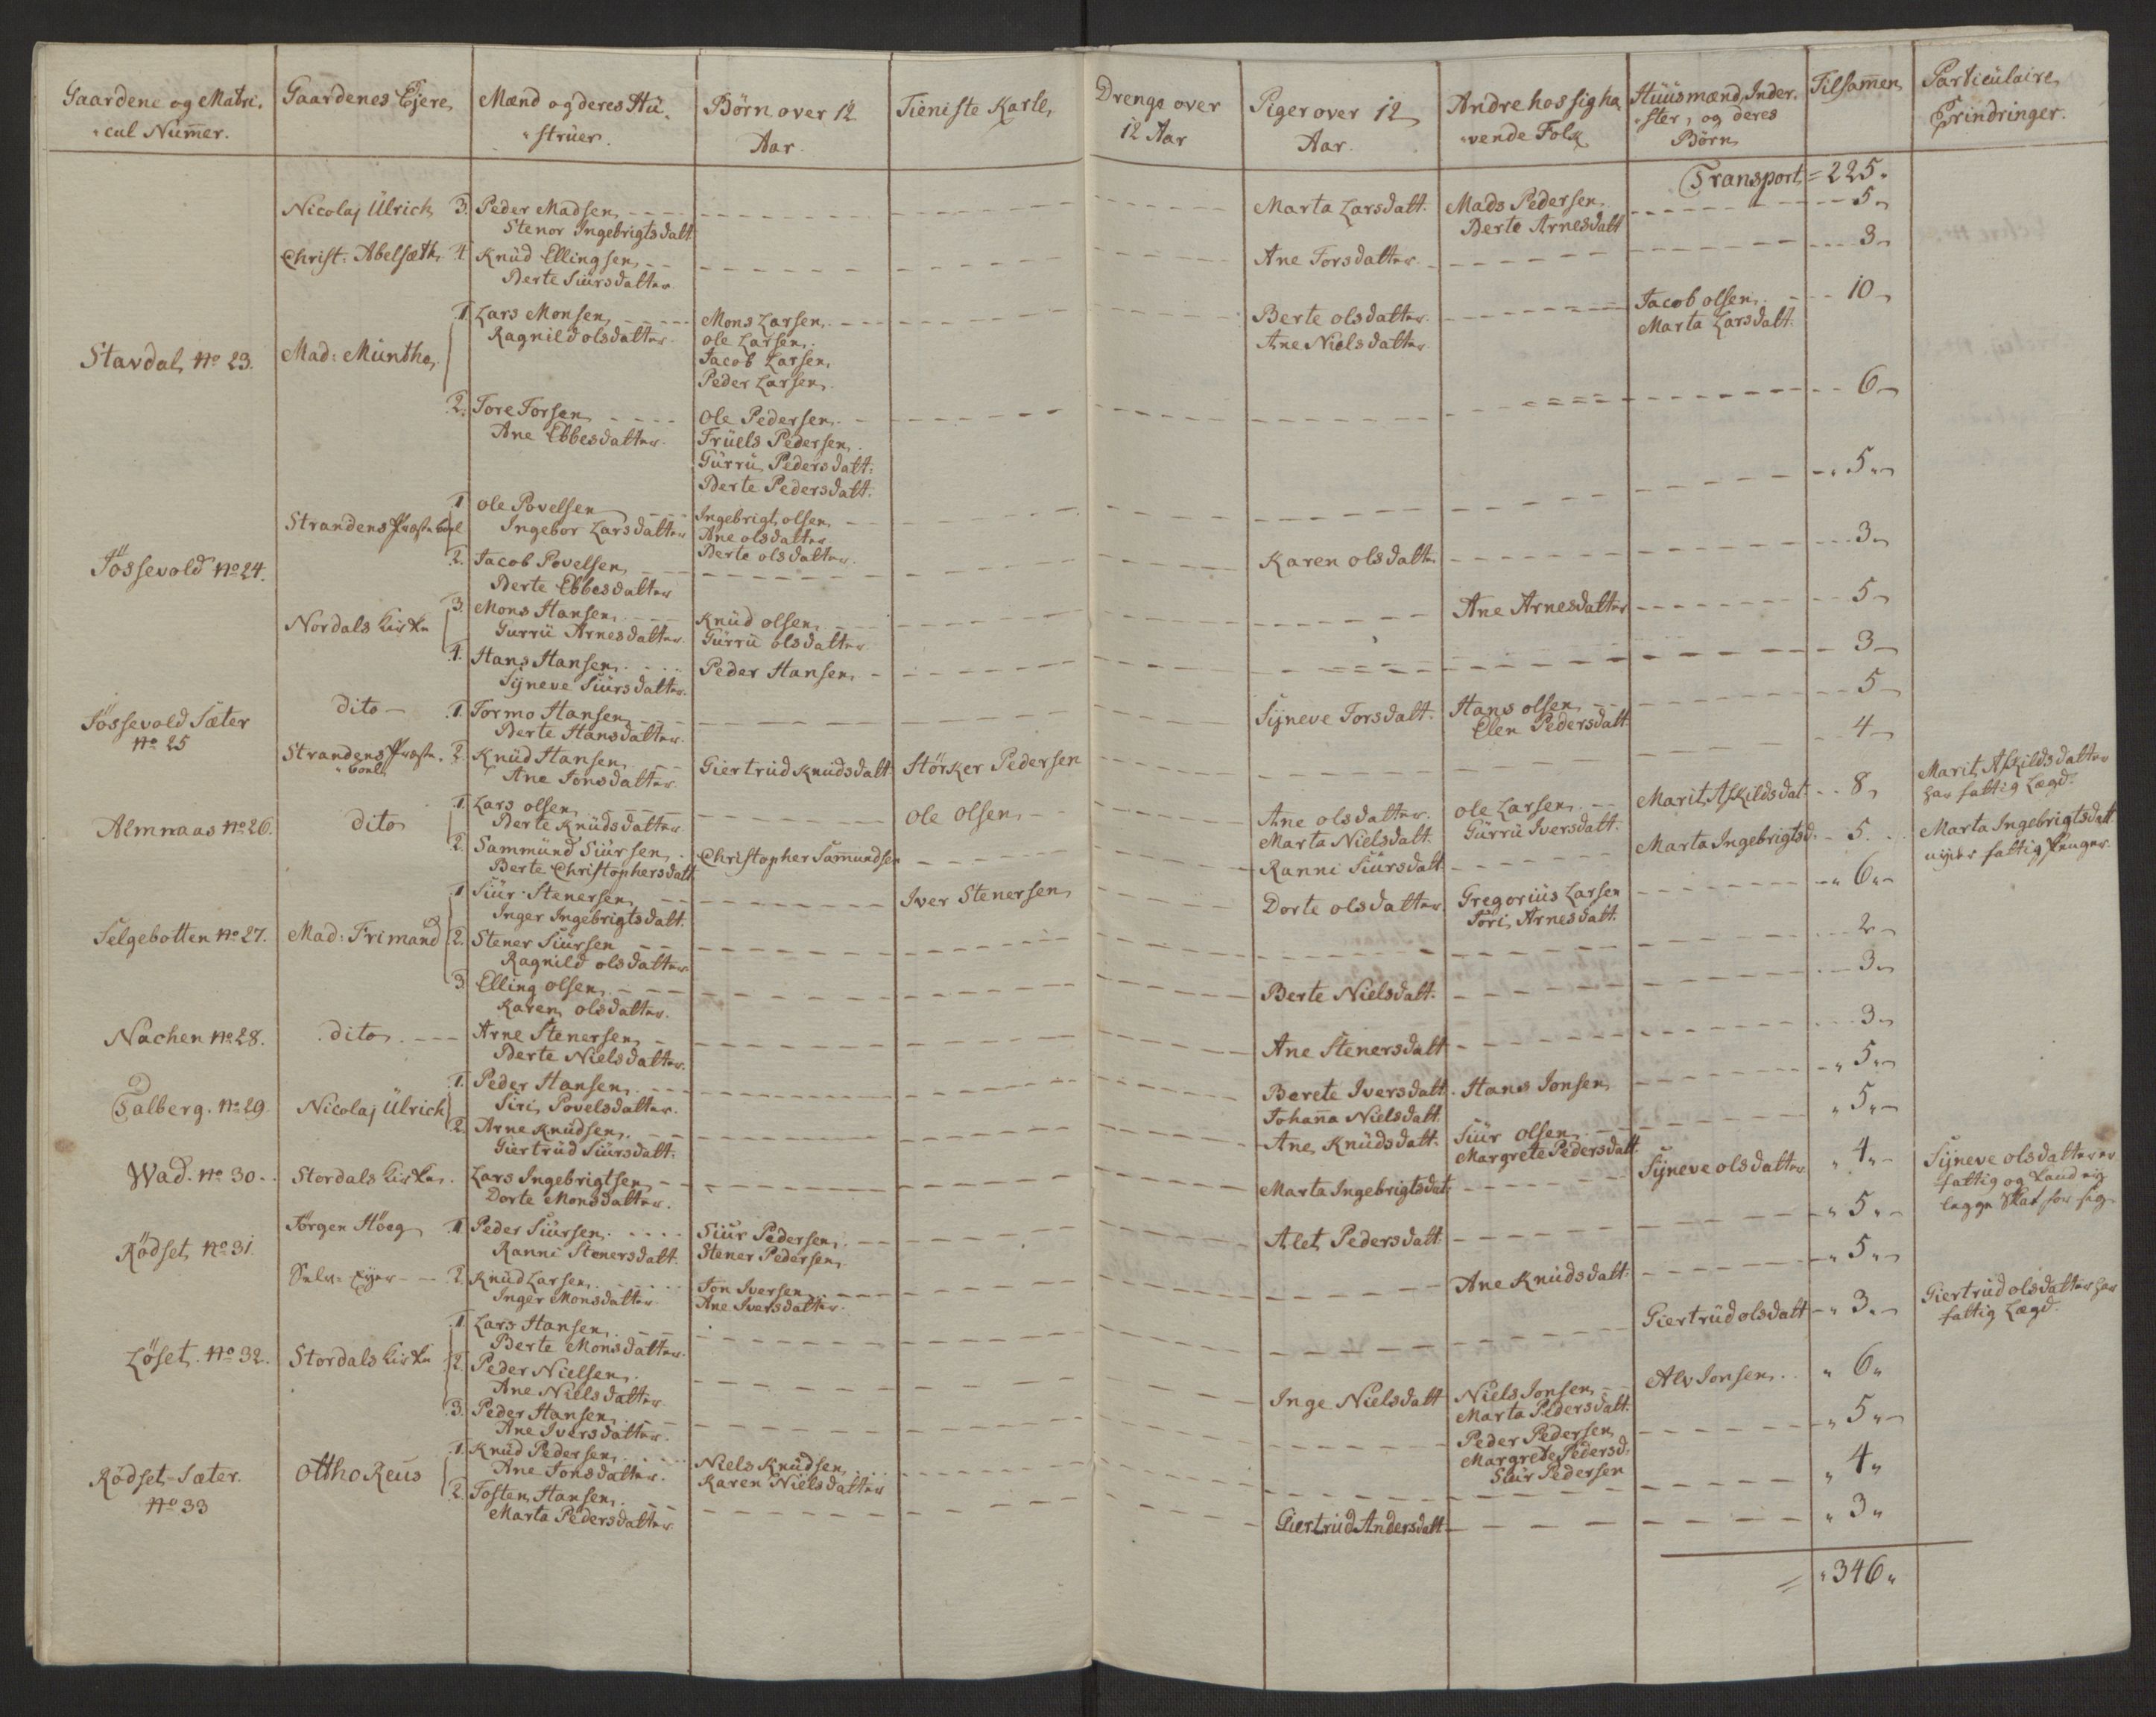 Gaardene og Matri-
cul Nummer.
Gaardenes Ejere
Mænd og deres Hu-
struer.
Børn over 12
Aar.
Tieniste Karle
Drenge over
12 Aar
Piger over 12
Aar.
Andre hos sig ha-
vende Folk
Huusmænd, Inder-
ster, og deres
Børn
Tilsammen
Particulaire
Erindringer.
Transport = 225.
Nicolaj Ulrich 3. Peder Madsen Marta Larsdatt. Mads Pedersen 5
Stenor Ingebrigtsdatt Berte Arnesdatt
Christ: Abelsæth 4. Knud Ellingsen Ane Torsdatter 3
Berte Siursdatter
1. Lars Monsen Mons Larsen Berte olsdatter Jacob olsen 10
Ragnild olsdatter ole Larsen Ane Nielsdatter Marta Larsdatt.
Stavdal No 23. Mad: Munthe Jacob Larsen
Peder Larsen
2. Tore Torsen ole Pedersen 6
Ane Ebbesdatter Truels Pedersen
Gurru Pedersdatt:
Berte Pedersdatt.
1 ole Povelsen Ingebrigt olsen 5
Strandens Præsteboel Ingebor Larsdatter Ane olsdatter
Berte olsdatter
Jössevold No 24. 2. Jacob Povelsen Karen olsdatter 3
Berte Ebbesdatter
3. Mons Hansen Knud olsen Ane Arnesdatter 5
Nordals Kirke Gurru Arnesdatter Gurru olsdatter
4. Hans Hansen Peder Hansen 3
Syneve Siursdatter
Jössevold Sæter dito 1. Tormo Hansen Syneve Torsdatt. Hans olsen 5
No 25 Berte Hansdatter Elen Pedersdatt
Strandens Præste- 2. Knud Hansen Giertrud Knudsdatt Störker Pedersen 4
boel Ane Jonsdatter
1. Lars olsen Ole Olsen Ane olsdatter ole Larsen Marit Askildsdat 8 Marit Askildsdatter
Almnaas No 26. dito Berte Knudsdatter Marta Nielsdatt. Gurru Iversdatt. har fattig Lægd.
2. Sammund Siursen Christopher Samundsen Ranni Siursdatt Marta Ingebrigtsd. 5 Marta Ingebrigtsdatt
Berte Christophersdatt nyder fattig Penger
1 Siur Stenersen Iver Stenersen Dorte olsdatter Gregorius Larsen 6
Inger Ingebrigtsdatt. Siri Arnesdatt.
Selgebotten No 27. Mad: Frimand 2. Stener Siursen 2
Ragnild olsdatter
3 Elling olsen Berte Nielsdatt. 3
Karen olsdatter
Nachen No 28. dito Arne Stenersen Ane Stenersdatt 3
Berte Nielsdatter
1. Peder Hansen Berete Iversdatt. Hans Jonsen 5
Talberg. No 29 Nicolaj Ulrich Siri Povelsdatter Johanna Nielsdatt
2. Arne Knudsen Ane Knudsdatt. Siur olsen 5
Giertrud Siursdatt. Margrete Pedersdatt
Wad. No 30. Stordals Kirke Lars Ingebrigtsen Marta Ingebrigtsdat Syneve olsdatter 4 Syneve olsdatter er
Dorte Monsdatter fattig og Kand ej
lægge Skat for sig.
Jörgen Höeg 1 Peder Siursen Siur Pedersen Alet Pedersdatt. 5
Rödset No 31. Ranni Stenersdatt Stener Pedersen
Selv Ejer 2. Knud Larsen Jon Iversen Ane Knudsdatt. 5
Inger Monsdatter Ane Iversdatter
1 Lars Hansen Giertrud olsdatt 3 Giertrud olsdatter har
Berte Monsdatter fattig Lægd.
Löset No 32. Stordals Kirke 2. Peder Nielsen Inge Nielsdatt Niels Jonsen Alv Jonsen 6
Ane Nielsdatter Marta Pedersdatt.
3. Peder Hansen Peder Pedersen 5
Ane Iversdatter Margrete Pedersd.
Siur Pedersen
1. Knud Pedersen Niels Knudsen 4
Rödset-Sæter. Ottho Reus Ane Jonsdatter Karen Nielsdatter
No 33 2. Tosten Hansen Giertrud Andersdatt 3
Marta Pedersdatter
= 346